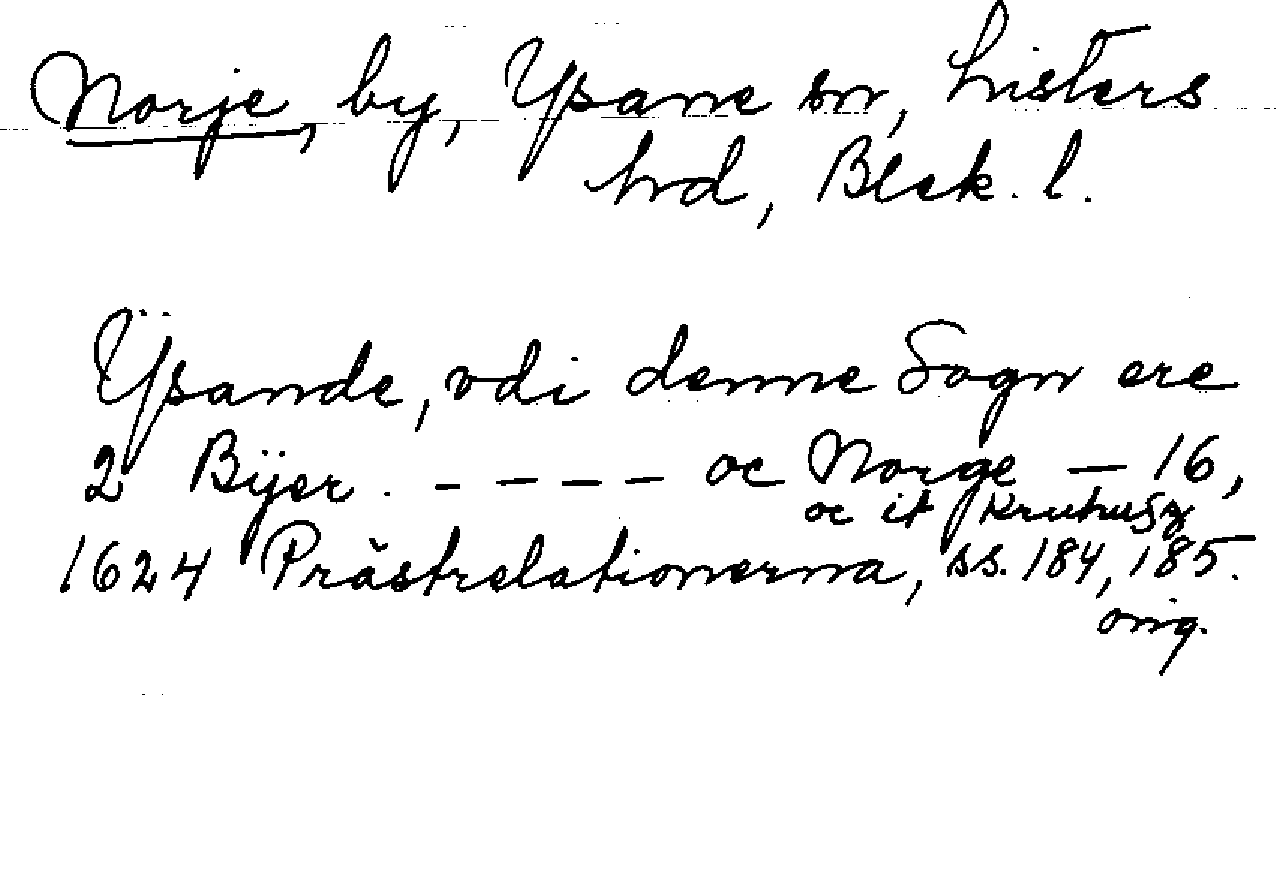 Norje, by, Ysane sn, Listers
hrd, Blek. l.
Ÿsande, vdi denne Sogn ere
2 Bÿer. - - - - oc Norge — 16,
oc it Kruthusz
1624 Prästrelationerna, ss. 184, 185.
orig.